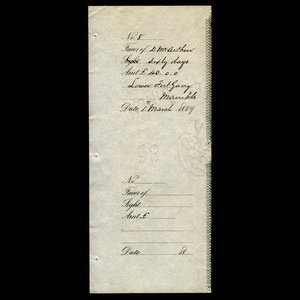 No 8
Favor of D. McArthur
Sight Sixty days
Amt £ 40.0.0
Lower Fort Garry
Manitoba
Date 1st March 1889
No
Favor of
Sight
Amt £
Date 18